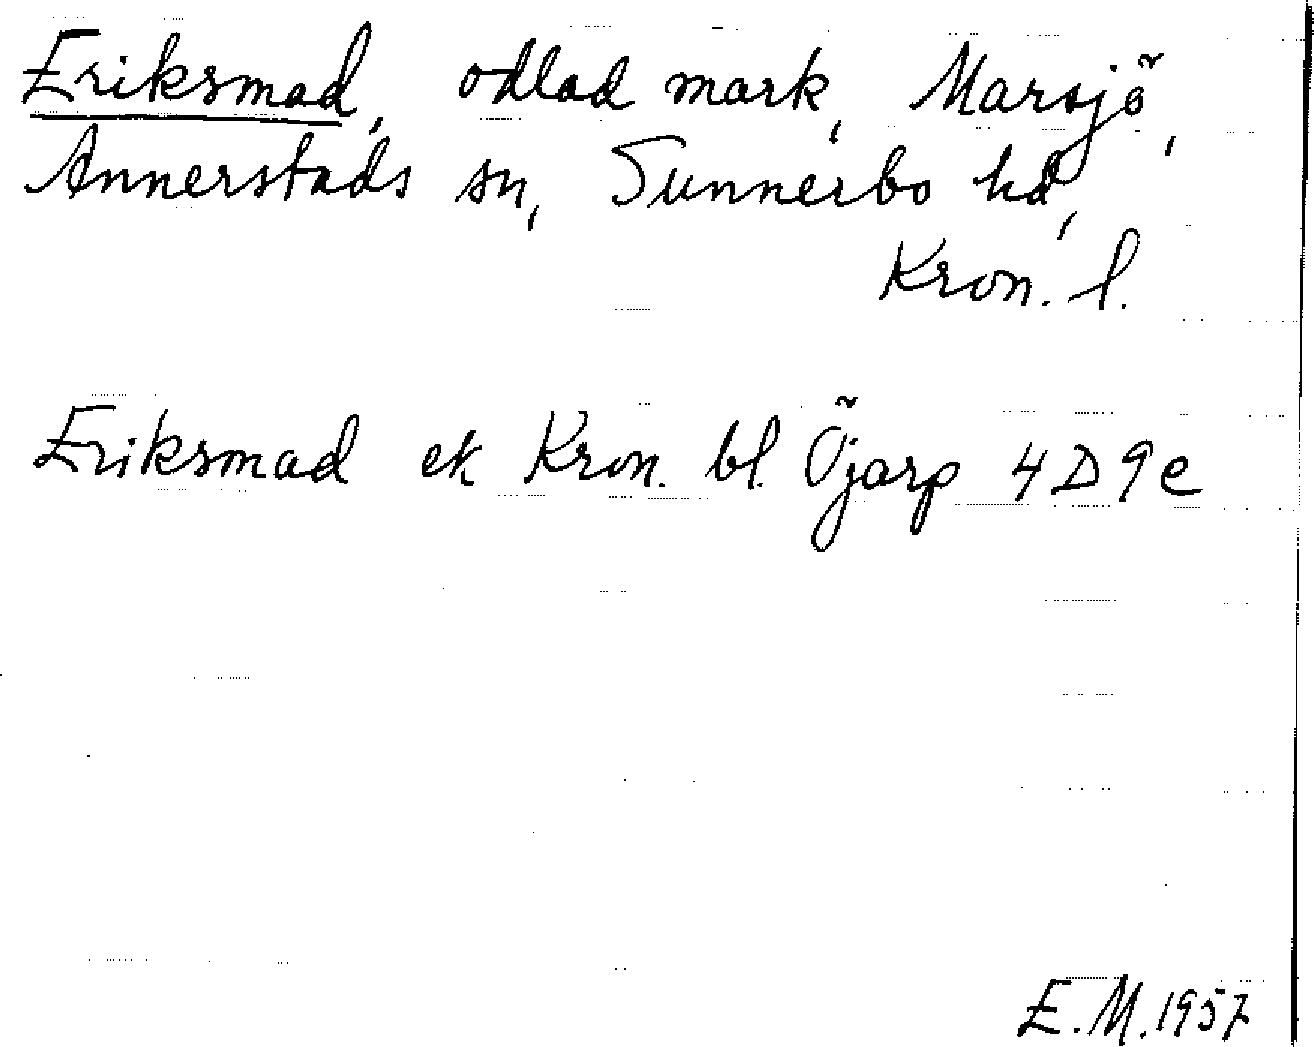 Eriksmad, odlad mark, Marsjö,
Annerstads sn, Sunnerbo hd,
Kron. l.
Eriksmad ek Kron. bl. Öjarp 4D9e
E.M. 1957